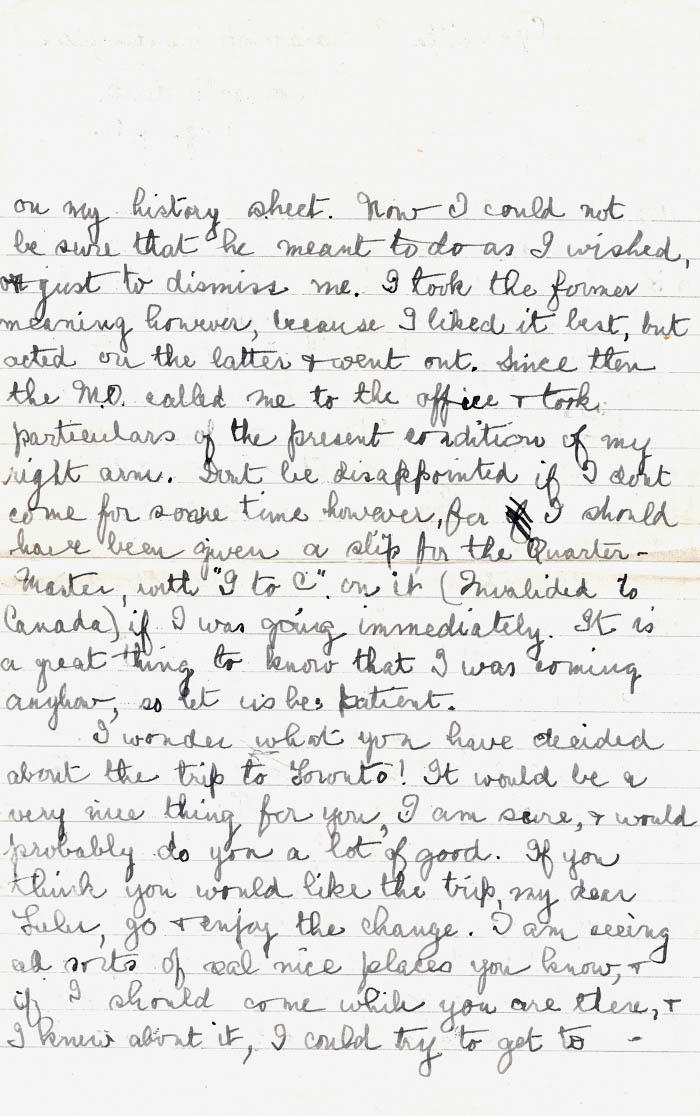 on my history sheet. Now I could not
be sure that he meant to do as I wished,
or just to dismiss me. I took the former
meaning however, because I liked it best, but
acted on the latter & went out. Since then
the M.O. called me to the office & took
particulars of the present condition of my
right arm. Dont be disappointed if I dont
come for some time however, for I should
have been given a slip for the Quarter-
Master, with "I to C". on it (Invalided to
Canada) if I was going immediately. It is
a great thing to know that I was coming
anyhow, so let us be patient.
I wonder what you have decided
about the trip to Toronto! It would be a
very nice thing for you, I am sure, & would
probably do you a lot of good. If you
think you would like the trip, my dear
Lulu, go & enjoy the change. I am seeing
all sorts of real nice places you know, &
if I should come while you are there, &
I knew about it, I could try to get to -